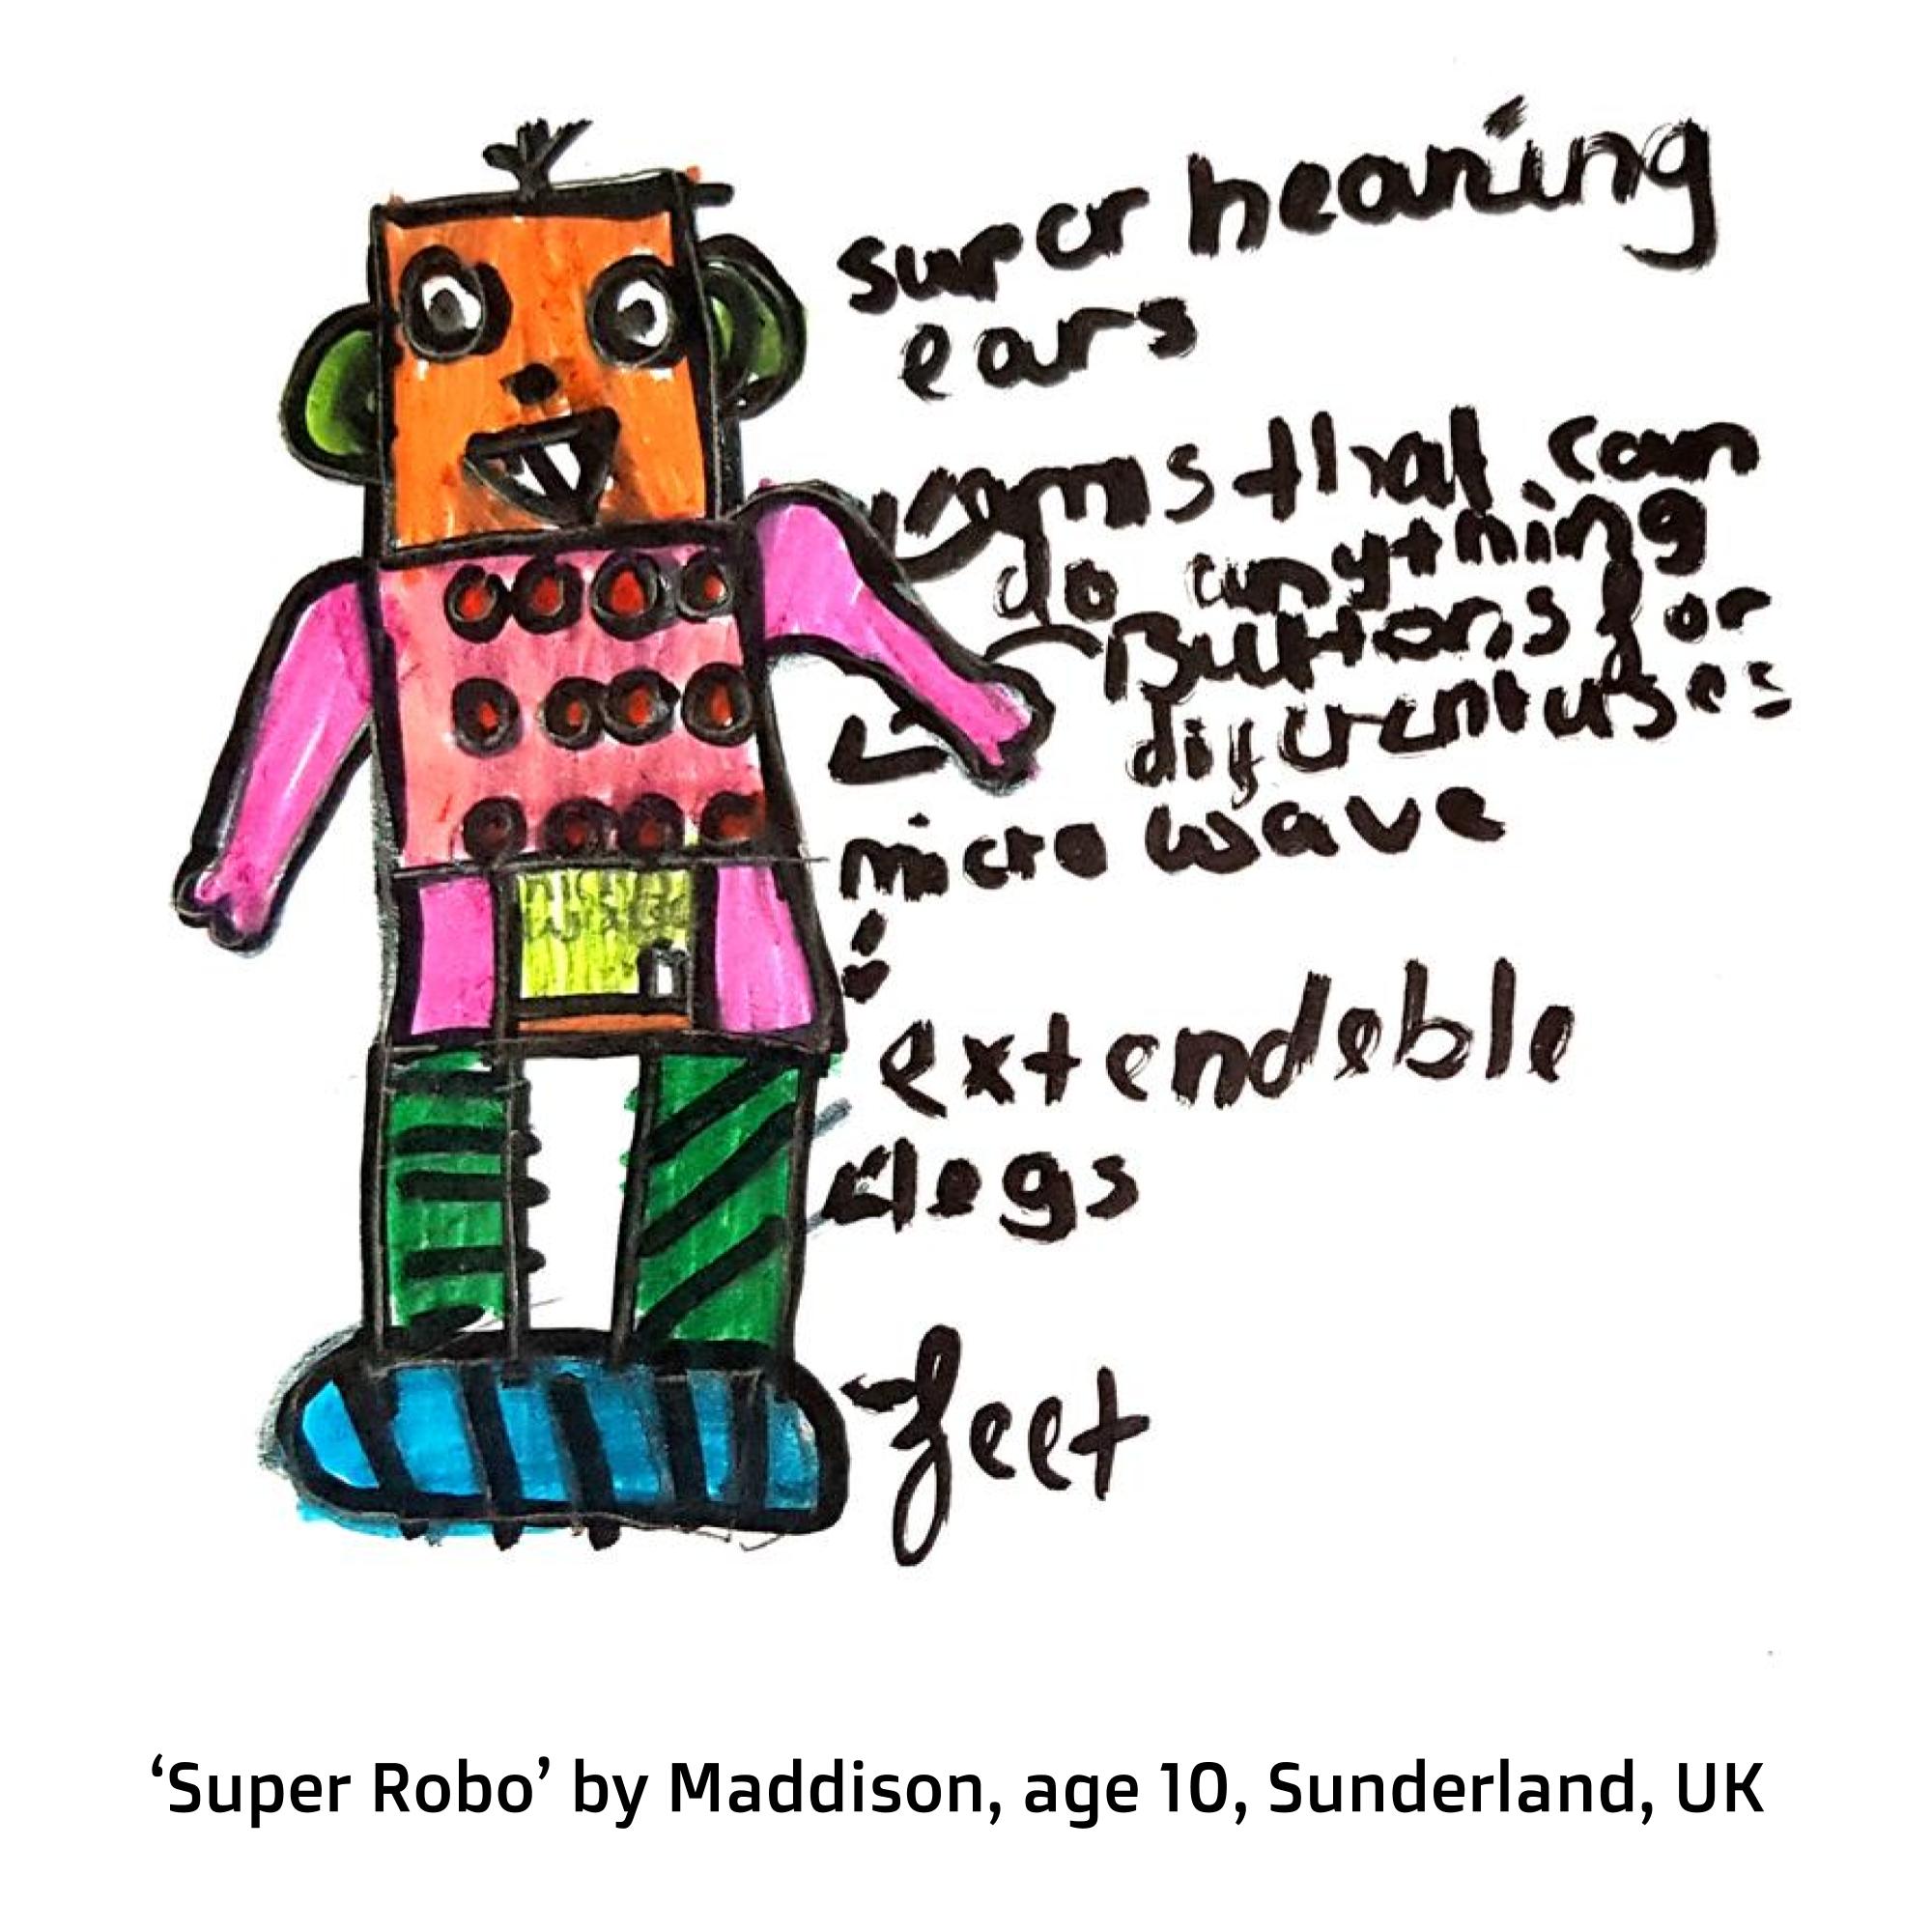 super hearing
ears
arms that can
do anything
Buttons for
difurent uses
micro wave
extendeble
legs
feet
‘Super Robo’ by Maddison, age 10, Sunderland, UK